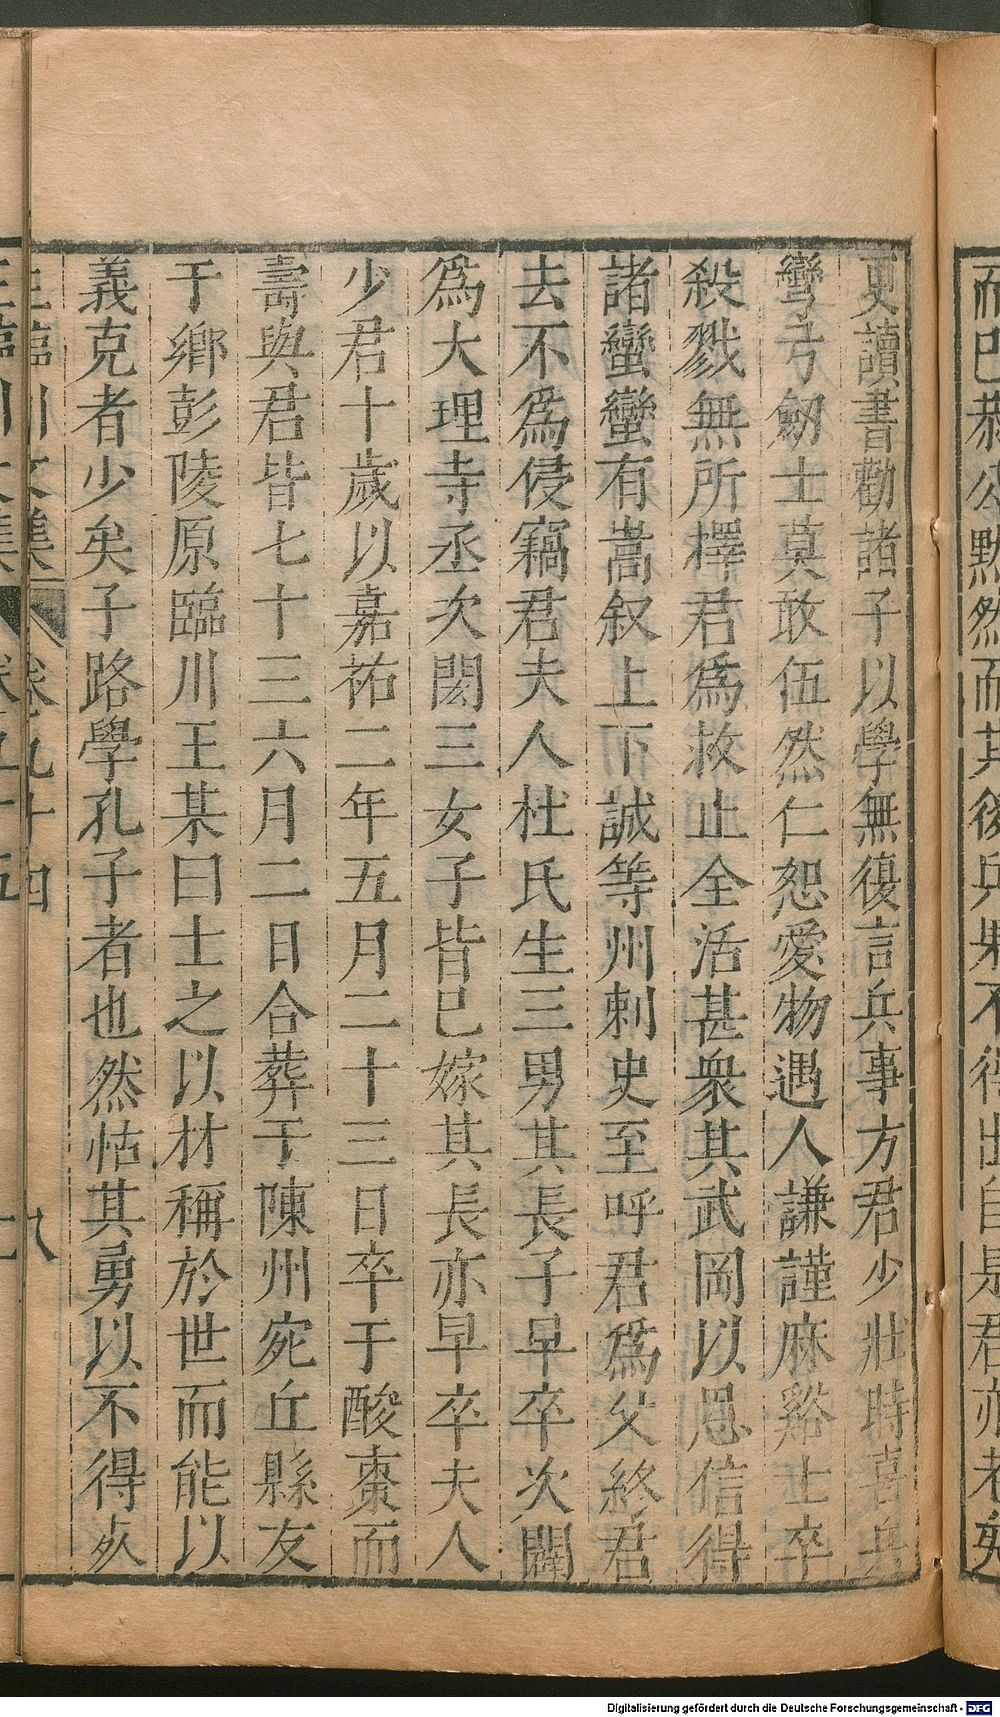 而巴恭公黙然而其後兵果不得出自是君亦老矣
更讀書勸諸子以學無復言兵事方君少壯時喜兵
彎弓劒士莫敢伍然仁恕愛物遇人謙謹麻谿士卒
殺戮無所擇君爲救止全活甚衆其武岡以恩信得
諸蠻蠻有嵩叙上下誠等州刺史至呼君爲父終君
去不爲侵竊君夫人杜氏生三男其長子早卒次闢
爲大理寺丞次閎三女子皆巳嫁其長亦早卒夫人
少君十歲以嘉祐二年五月二十三日卒于酸棗而
壽與君皆七十三六月二日合葬于陳州宛丘縣友
于鄉彭陵原臨川王某曰士之以材稱於世而能以
義克者少矣子路學孔子者也然怙其勇以不得夾
王臨川文集 卷九十四 八
Digitalisierung gefördert durch die Deutsche Forschungsgemeinschaft - DFG